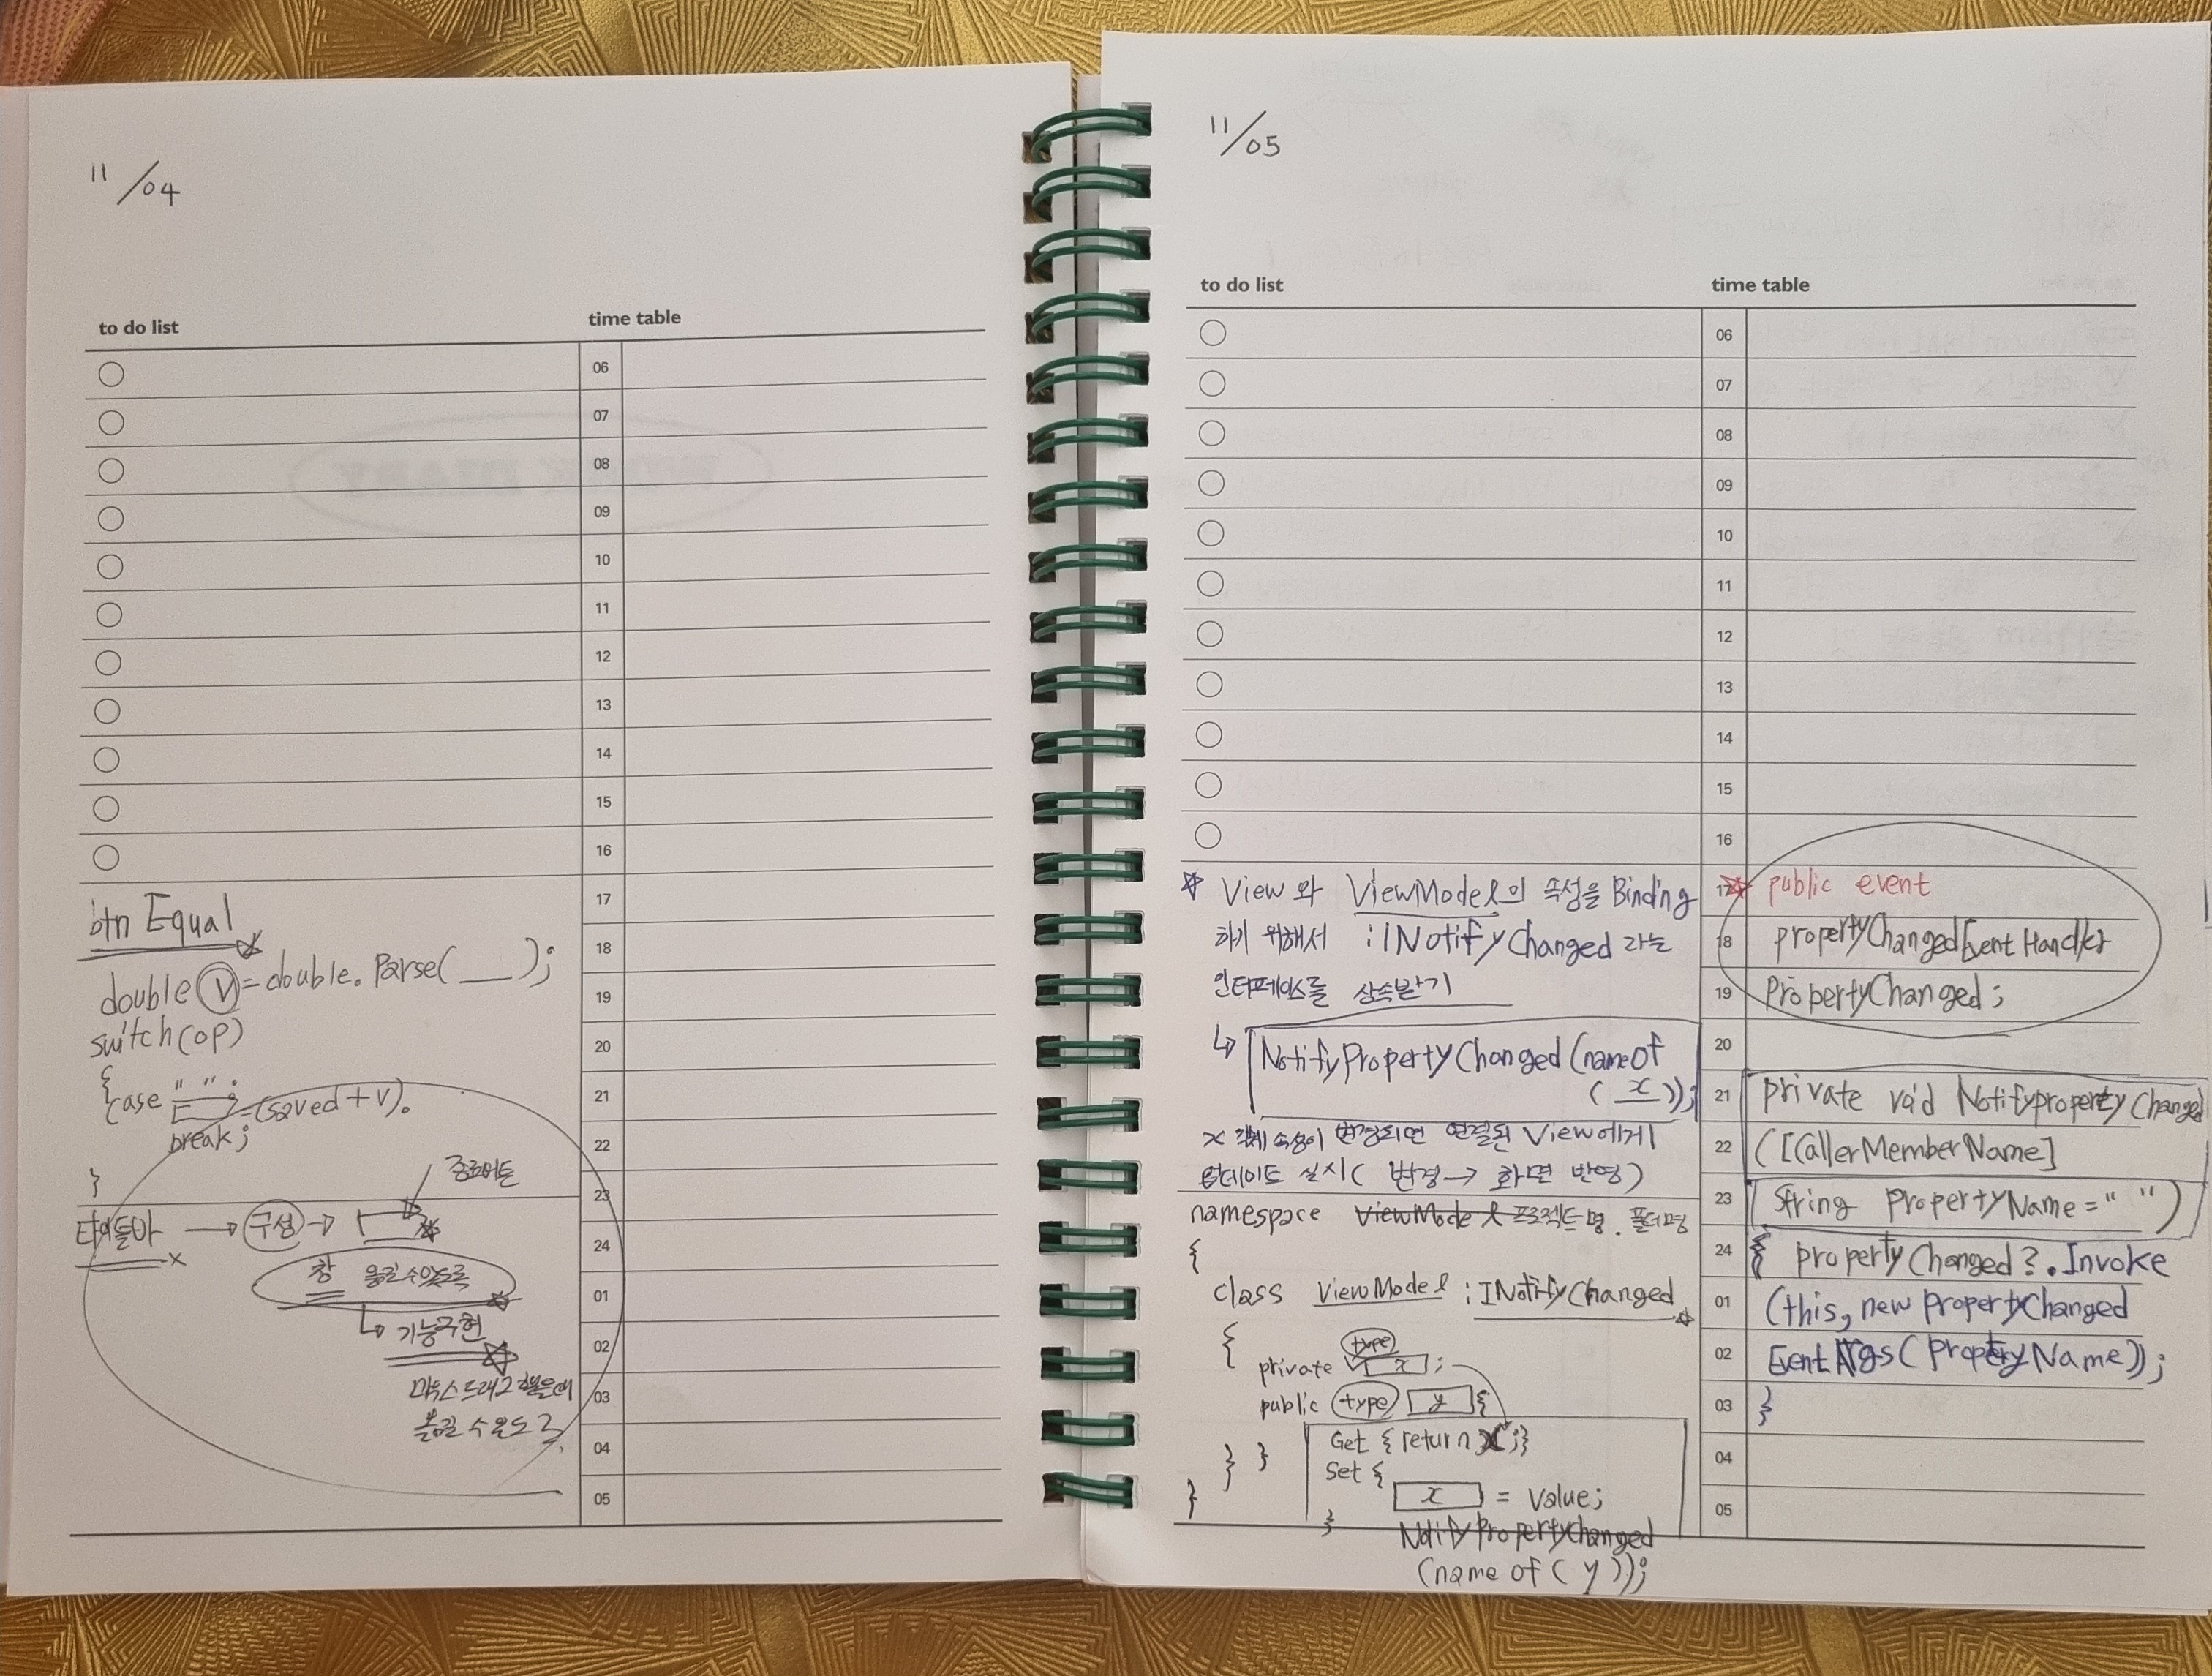 11/04
to do list
time table
06
07
08
09
10
11
12
13
14
15
16
17
18
19
20
21
22
23
24
01
02
03
04
05
btn Equal
double v = double. Parse( __ );
switch(op)
{
case " " :
= (saved + v).
break;
}
종료버튼
타이틀바 → 구성 →
창 움길 수 있도록
↳ 기능구현
마우스 드래그 했을때
옮길 수 있도록
11/05
to do list
time table
06
07
08
09
10
11
12
13
14
15
16
17
18
19
20
21
22
23
24
01
02
03
04
05
☆ View 와 ViewModel의 속성을 Binding
하기 위해서 : INotifyChanged 라는
인터페이스를 상속받기
↳ NotifyPropertyChanged (nameOf
( x ));
속성이 변경되면 연결된 View에게
업데이트 실시 ( 변경 → 화면 반영 )
namespace ViewModel 프로젝트명 . 폴더명
{
class ViewModel : INotifyChanged
{
private type x ;
public type y {
Get { return x ;}
Set {
x = Value;
}
NotifyPropertyChanged
(name of ( y ));
} }
}
☆ public event
propertyChangedEventHandler
PropertyChanged ;
private void NotifypropertyChanged
( [CallerMemberName]
String propertyName = " " )
{ propertyChanged?.Invoke
(this, new propertyChanged
EventArgs ( propertyName));
}